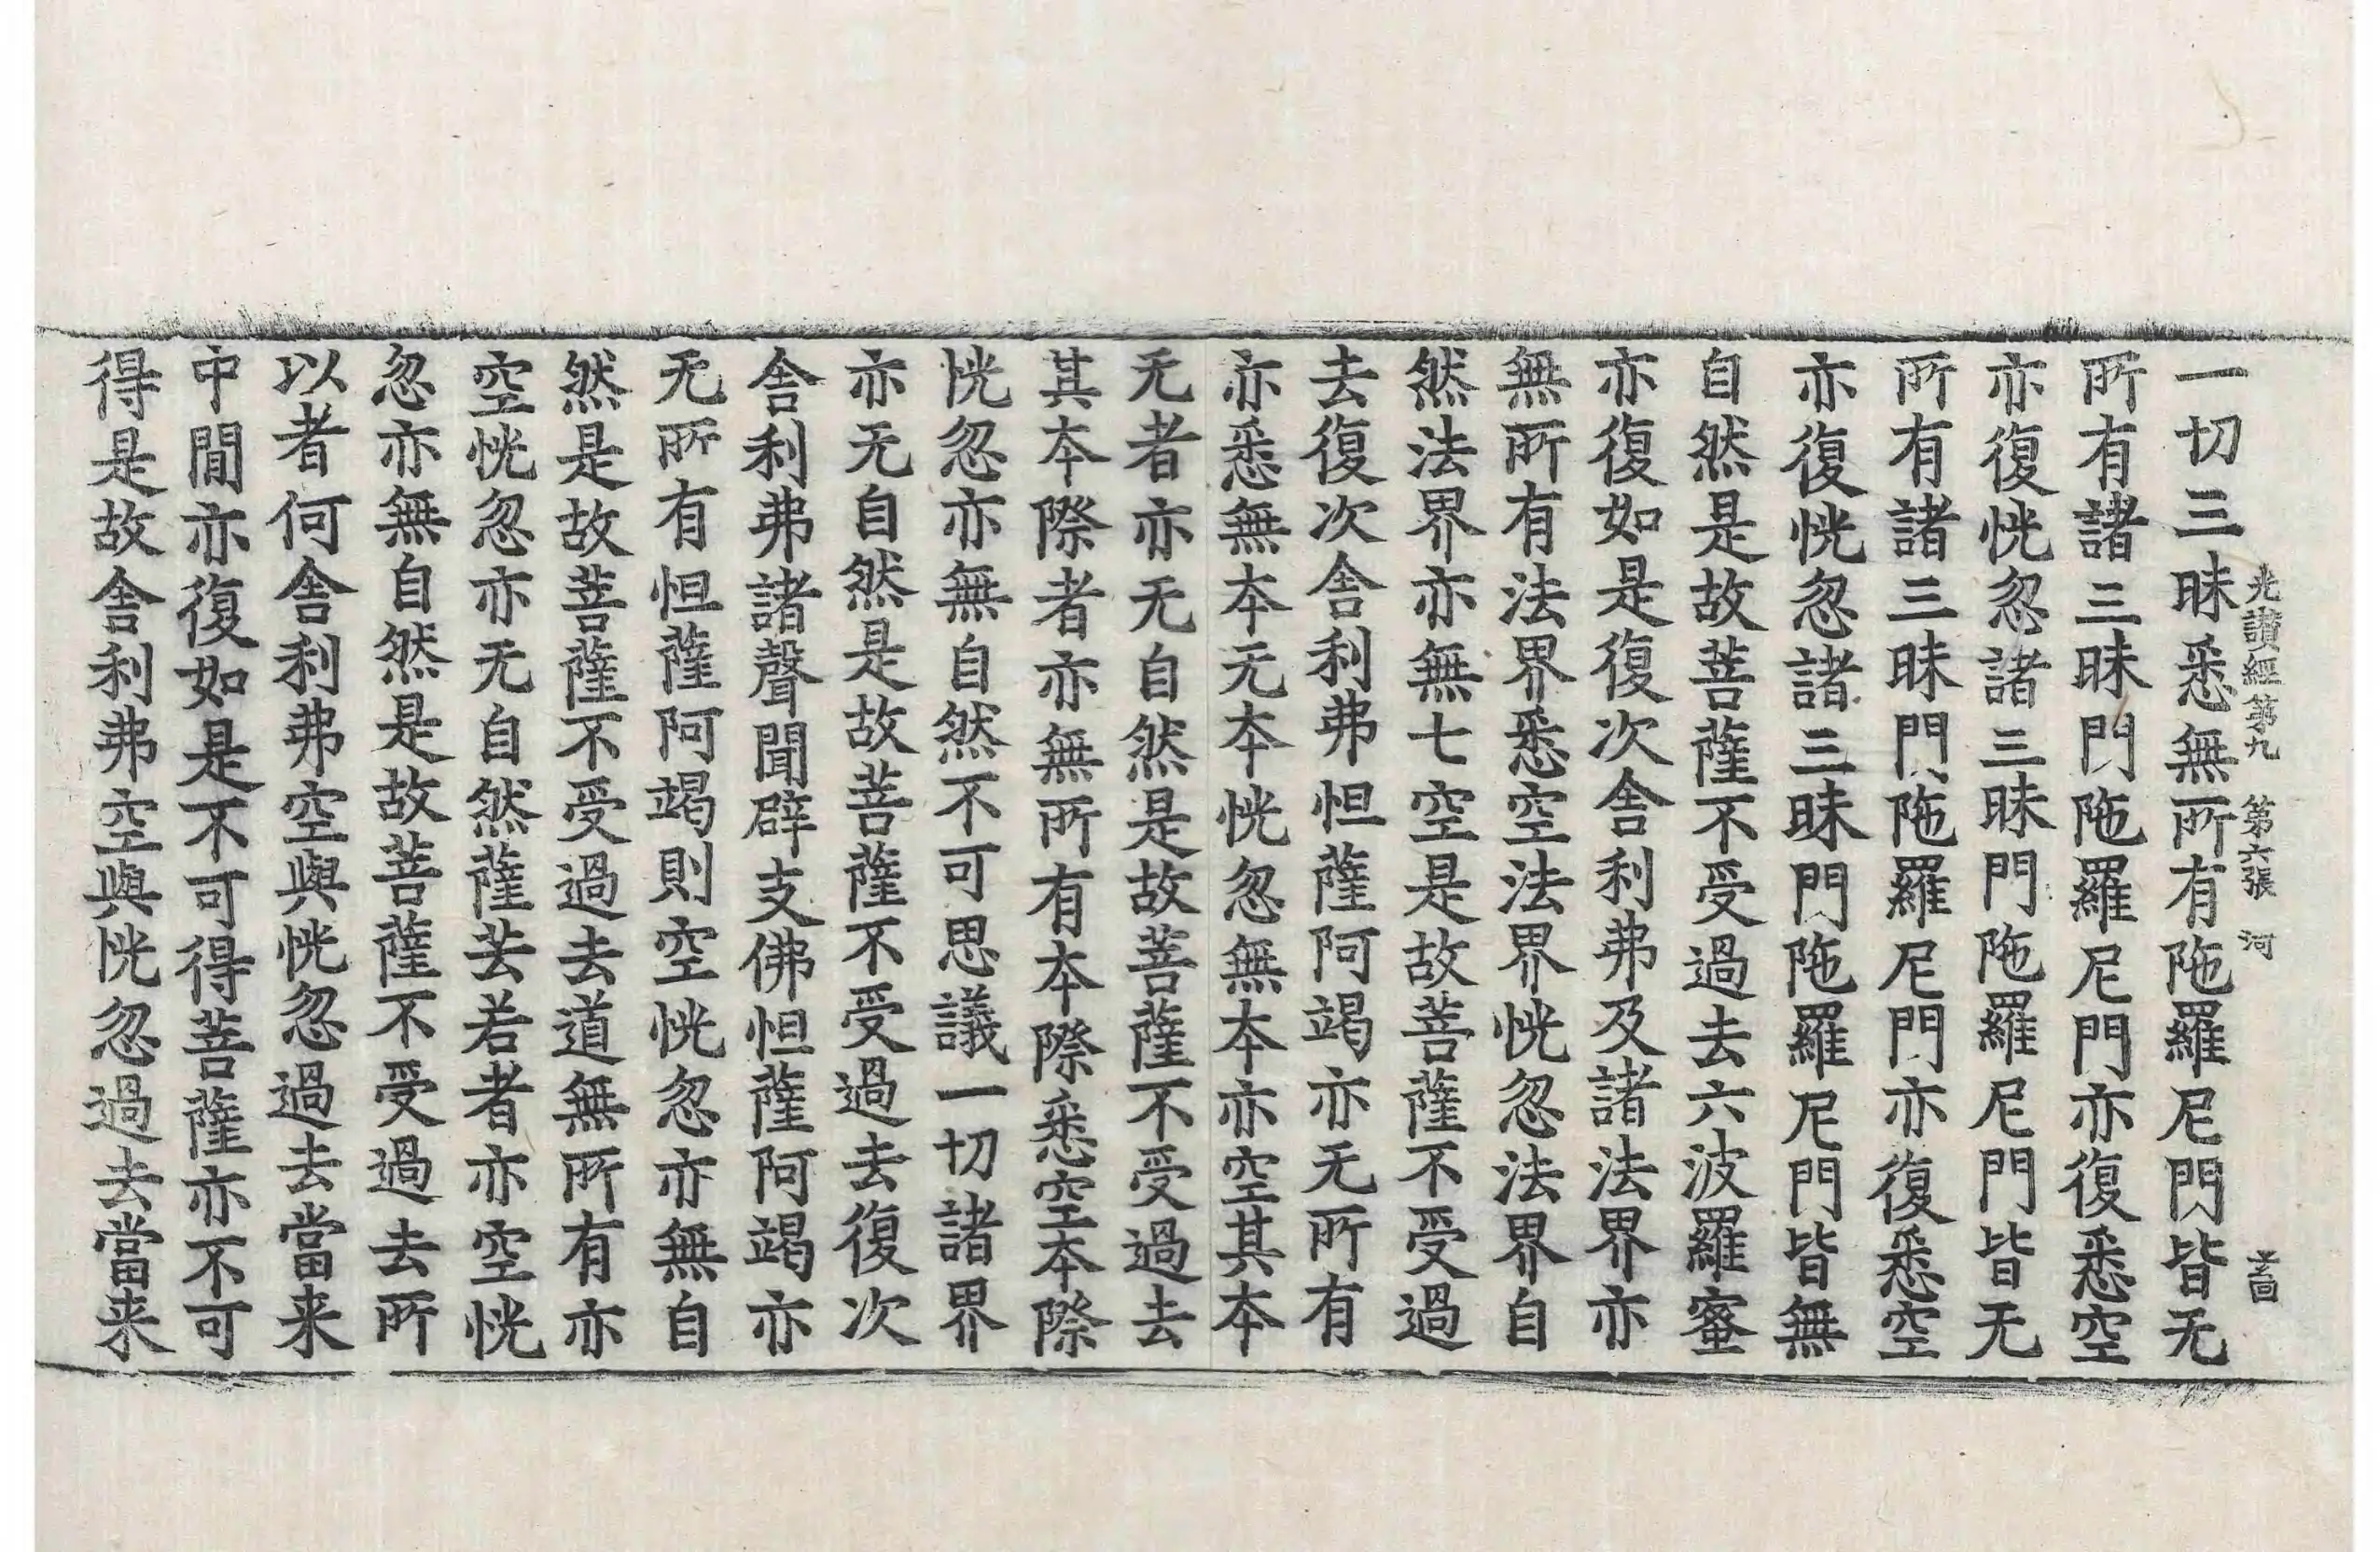 光讃經第九 第六張 河
一切三昧悉無所有陁羅尼門皆无
所有諸三昧門陁羅尼門亦復悉空
亦復恍忽諸三昧門陁羅尼門皆无
所有諸三昧門陁羅尼門亦復悉空
亦復恍忽諸三昧門陁羅尼門皆無
自然是故菩薩不受過去六波羅蜜
亦復如是復次舍利弗及諸法界亦
無所有法界悉空法界恍忽法界自
然法界亦無七空是故菩薩不受過
去復次舍利弗怛薩阿竭亦无所有
亦悉無本无本恍忽無本亦空其本
无者亦无自然是故菩薩不受過去
其本際者亦無所有本際悉空本際
恍忽亦無自然不可思議一切諸界
亦无自然是故菩薩不受過去復次
舍利弗諸聲聞辟支佛怛薩阿竭亦
无所有怛薩阿竭則空恍忽亦無自
然是故菩薩不受過去道無所有亦
空恍忽亦无自然薩芸若者亦空恍
忽亦無自然是故菩薩不受過去所
以者何舍利弗空與恍忽過去當来
中閒亦復如是不可得菩薩亦不可
得是故舍利弗空與恍忽過去當来